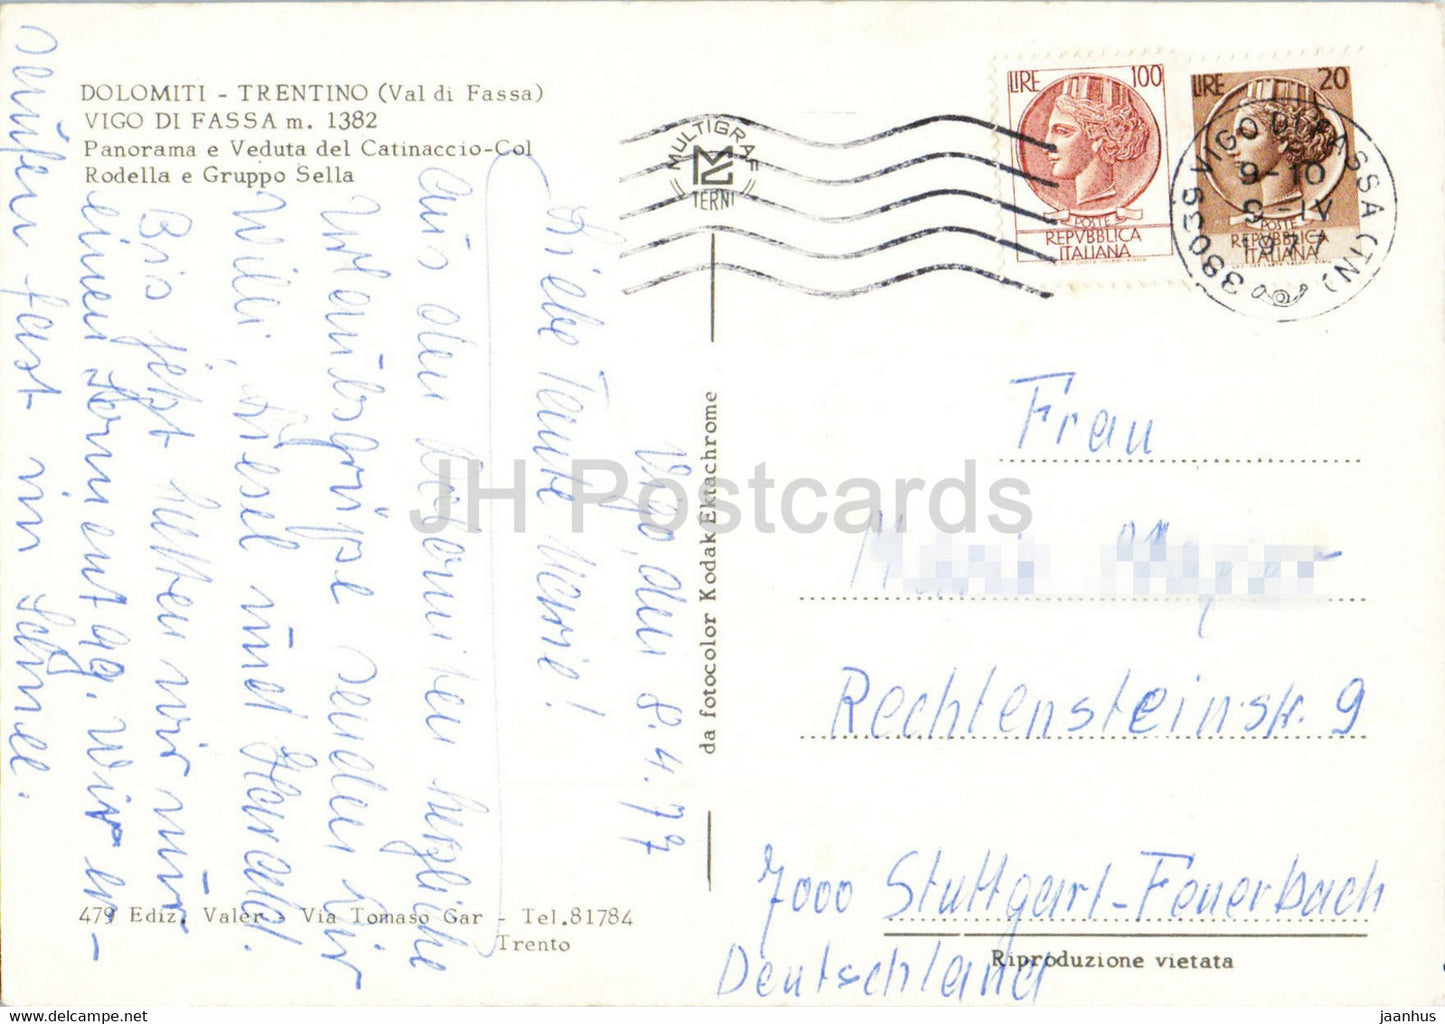 DOLOMITI - TRENTINO (Val di Fassa)
VIGO DI FASSA m. 1382
Panorama e Veduta del Catinaccio-Col
Rodella e Gruppo Sella
Vigo, den 8.4.77
Liebe Tante Marie!
Aus den Dolomiten herzliche
Urlaubsgrüße senden Dir
Willi, Liesel und Harald.
Bis jetzt hatten wir nur
einen Sonnentag. Wir er-
saufen fast im Schnee.
479 Ediz. Valer - Via Tomaso Gar - Tel.81784
Trento
da fotocolor Kodak Ektachrome
MULTIGRAF
TERNI
LIRE 100
POSTE
REPVBBLICA
ITALIANA
LIRE 20
POSTE
REPVBBLICA
ITALIANA
38039 VIGO DI FASSA (TN)
9-10
9-IV
1977
Frau
Rechtensteinstr. 9
7000 Stuttgart-Feuerbach
Deutschland
Riproduzione vietata
JH Postcards
www.hippostcard.com/store/jhpostcards
jaanhus